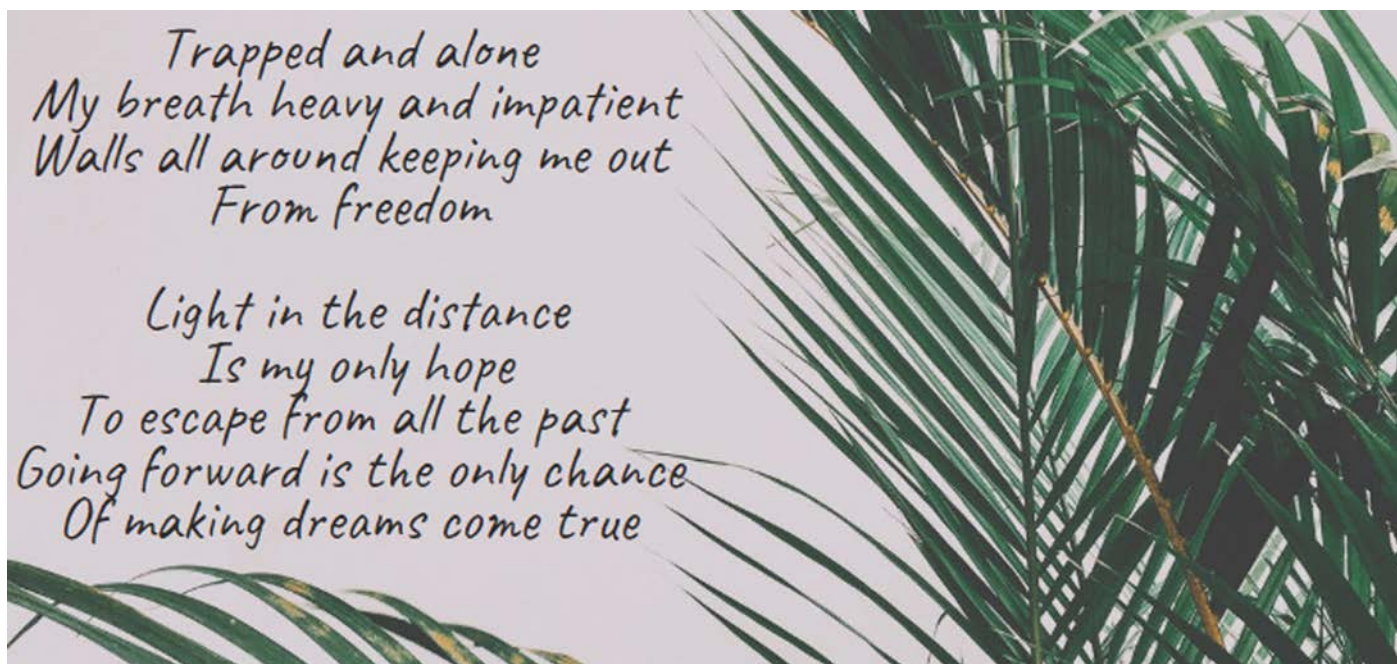 Trapped and alone
My breath heavy and impatient
Walls all around keeping me out
From freedom
Light in the distance
Is my only hope
To escape from all the past
Going forward is the only chance
Of making dreams come true